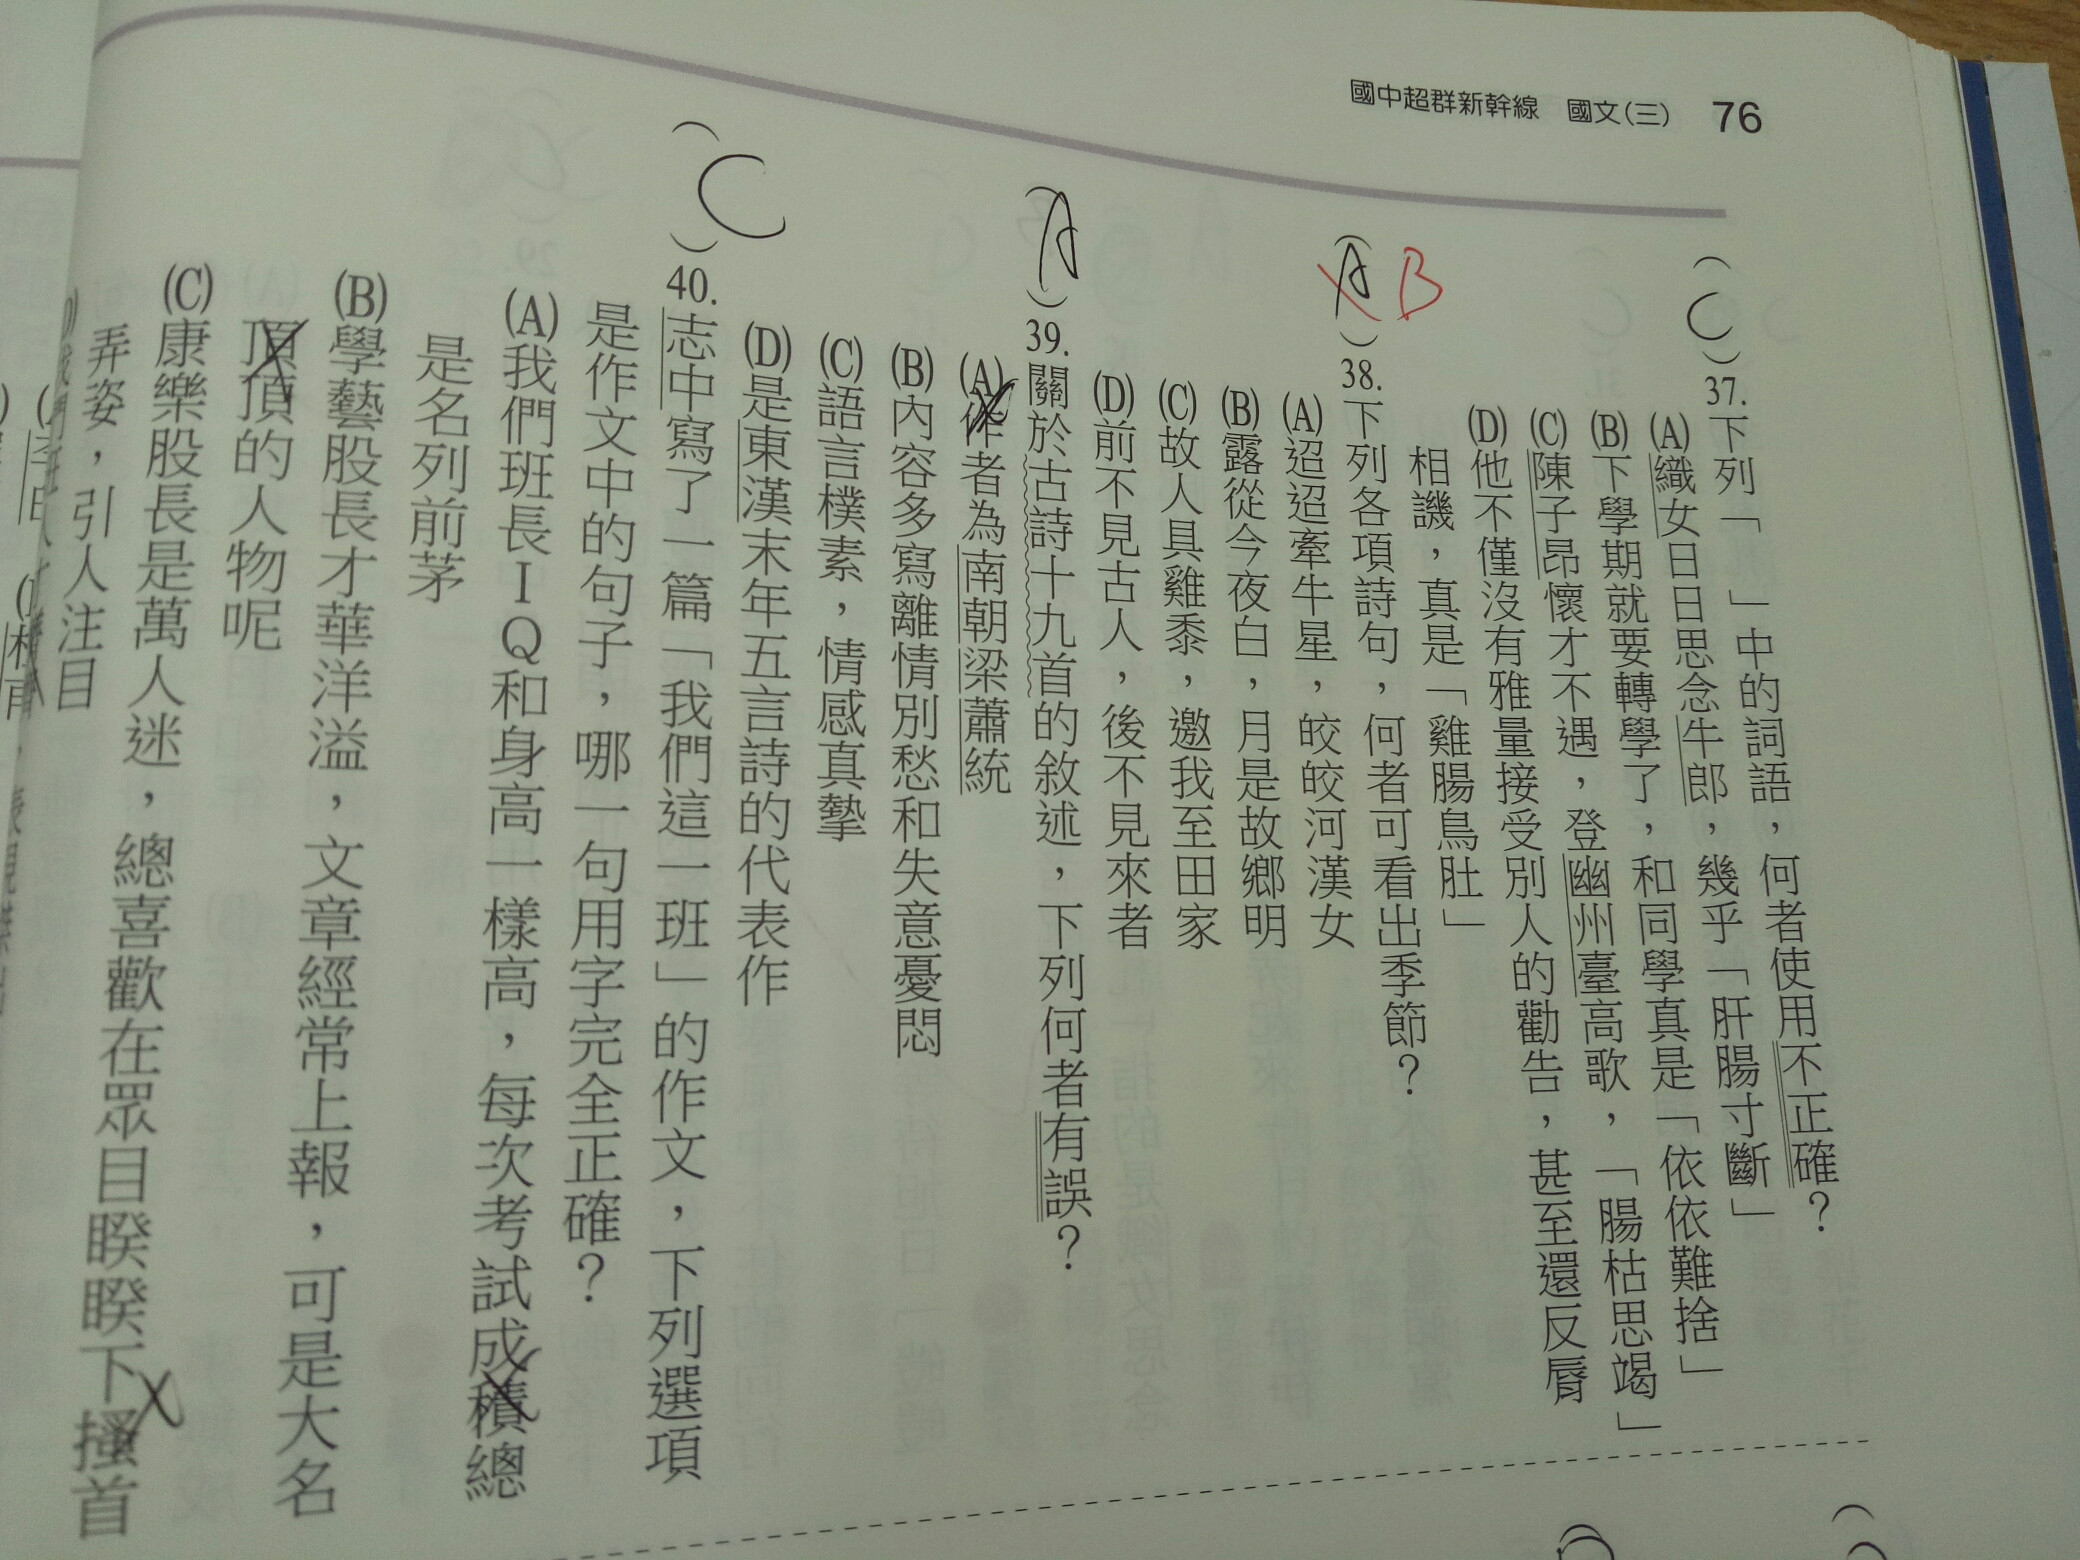 國中超群新幹線　國文(三)　76
(C)37.下列「　」中的詞語，何者使用不正確？
(A)織女日日思念牛郎，幾乎「肝腸寸斷」
(B)下學期就要轉學了，和同學真是「依依難捨」
(C)陳子昂懷才不遇，登幽州臺高歌，「腸枯思竭」
(D)他不僅沒有雅量接受別人的勸告，甚至還反脣
相譏，真是「雞腸鳥肚」
(A)B 38.下列各項詩句，何者可看出季節？
(A)迢迢牽牛星，皎皎河漢女
(B)露從今夜白，月是故鄉明
(C)故人具雞黍，邀我至田家
(D)前不見古人，後不見來者
(A)39.關於古詩十九首的敘述，下列何者有誤？
(A)作者為南朝梁蕭統
(B)內容多寫離情別愁和失意憂悶
(C)語言樸素，情感真摯
(D)是東漢末年五言詩的代表作
(C)40.志中寫了一篇「我們這一班」的作文，下列選項
是作文中的句子，哪一句用字完全正確？
(A)我們班長ＩＱ和身高一樣高，每次考試成積總
是名列前茅
(B)學藝股長才華洋溢，文章經常上報，可是大名
頂頂的人物呢
(C)康樂股長是萬人迷，總喜歡在眾目睽睽下搔首
弄姿，引人注目